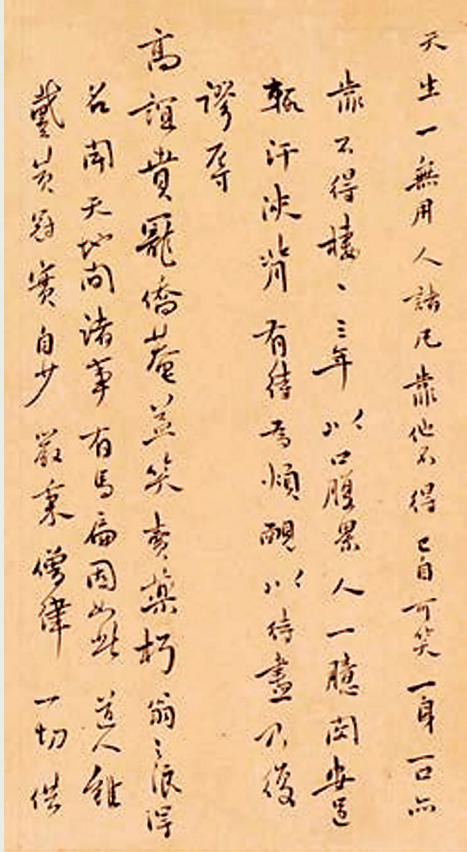 天生一無用人諸凡靠他不得已自可笑一身一口亦
靠不得棲〻三年以口腹累人一臆閔安邑
輒汗浹背有待為煩靦以待盡不復
謬辱
高誼貴寵僑菴並笑賣藥朽翁之浪得
名聞天地間諸事有馬扁因如此道人雖
戴黃冠實自少嚴秉僧律一切供